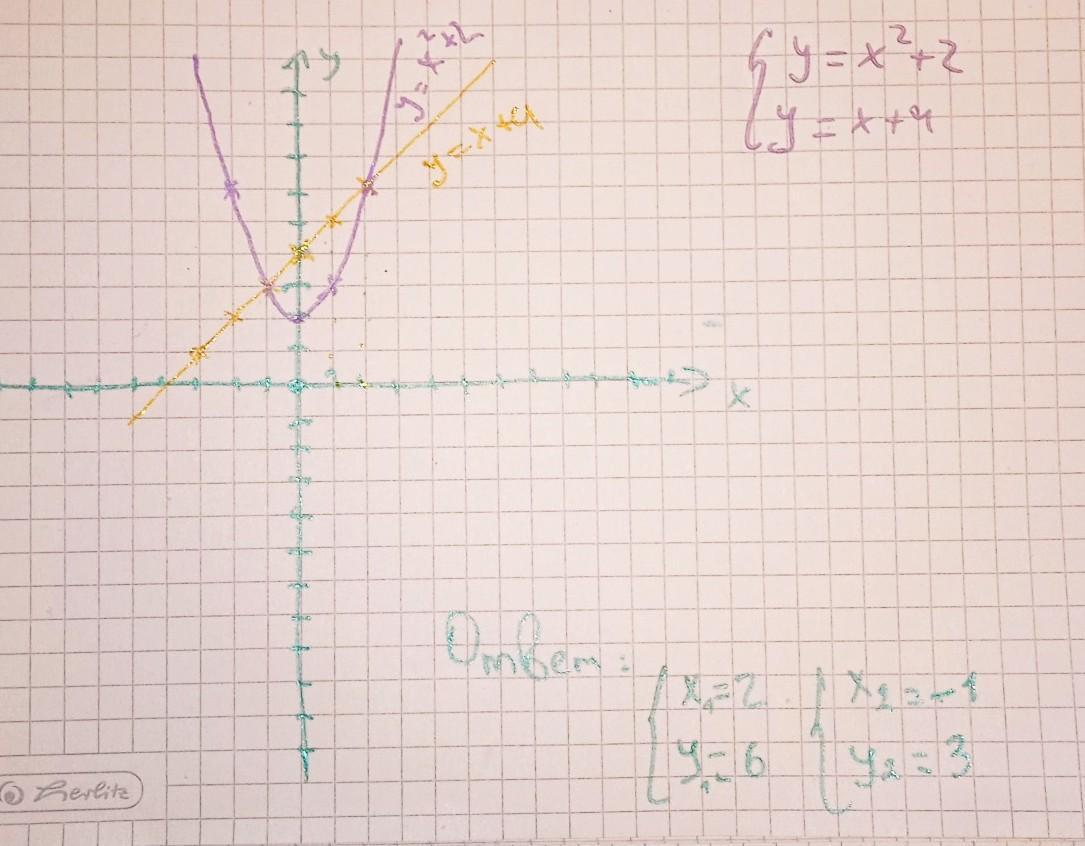 y
y = x² x2
y = x + 4
x
{ y = x² + 2
{ y = x + 4
Ответ:
{ x₁ = 2
{ y₁ = 6
{ x₂ = -1
{ y₂ = 3
Herlitz